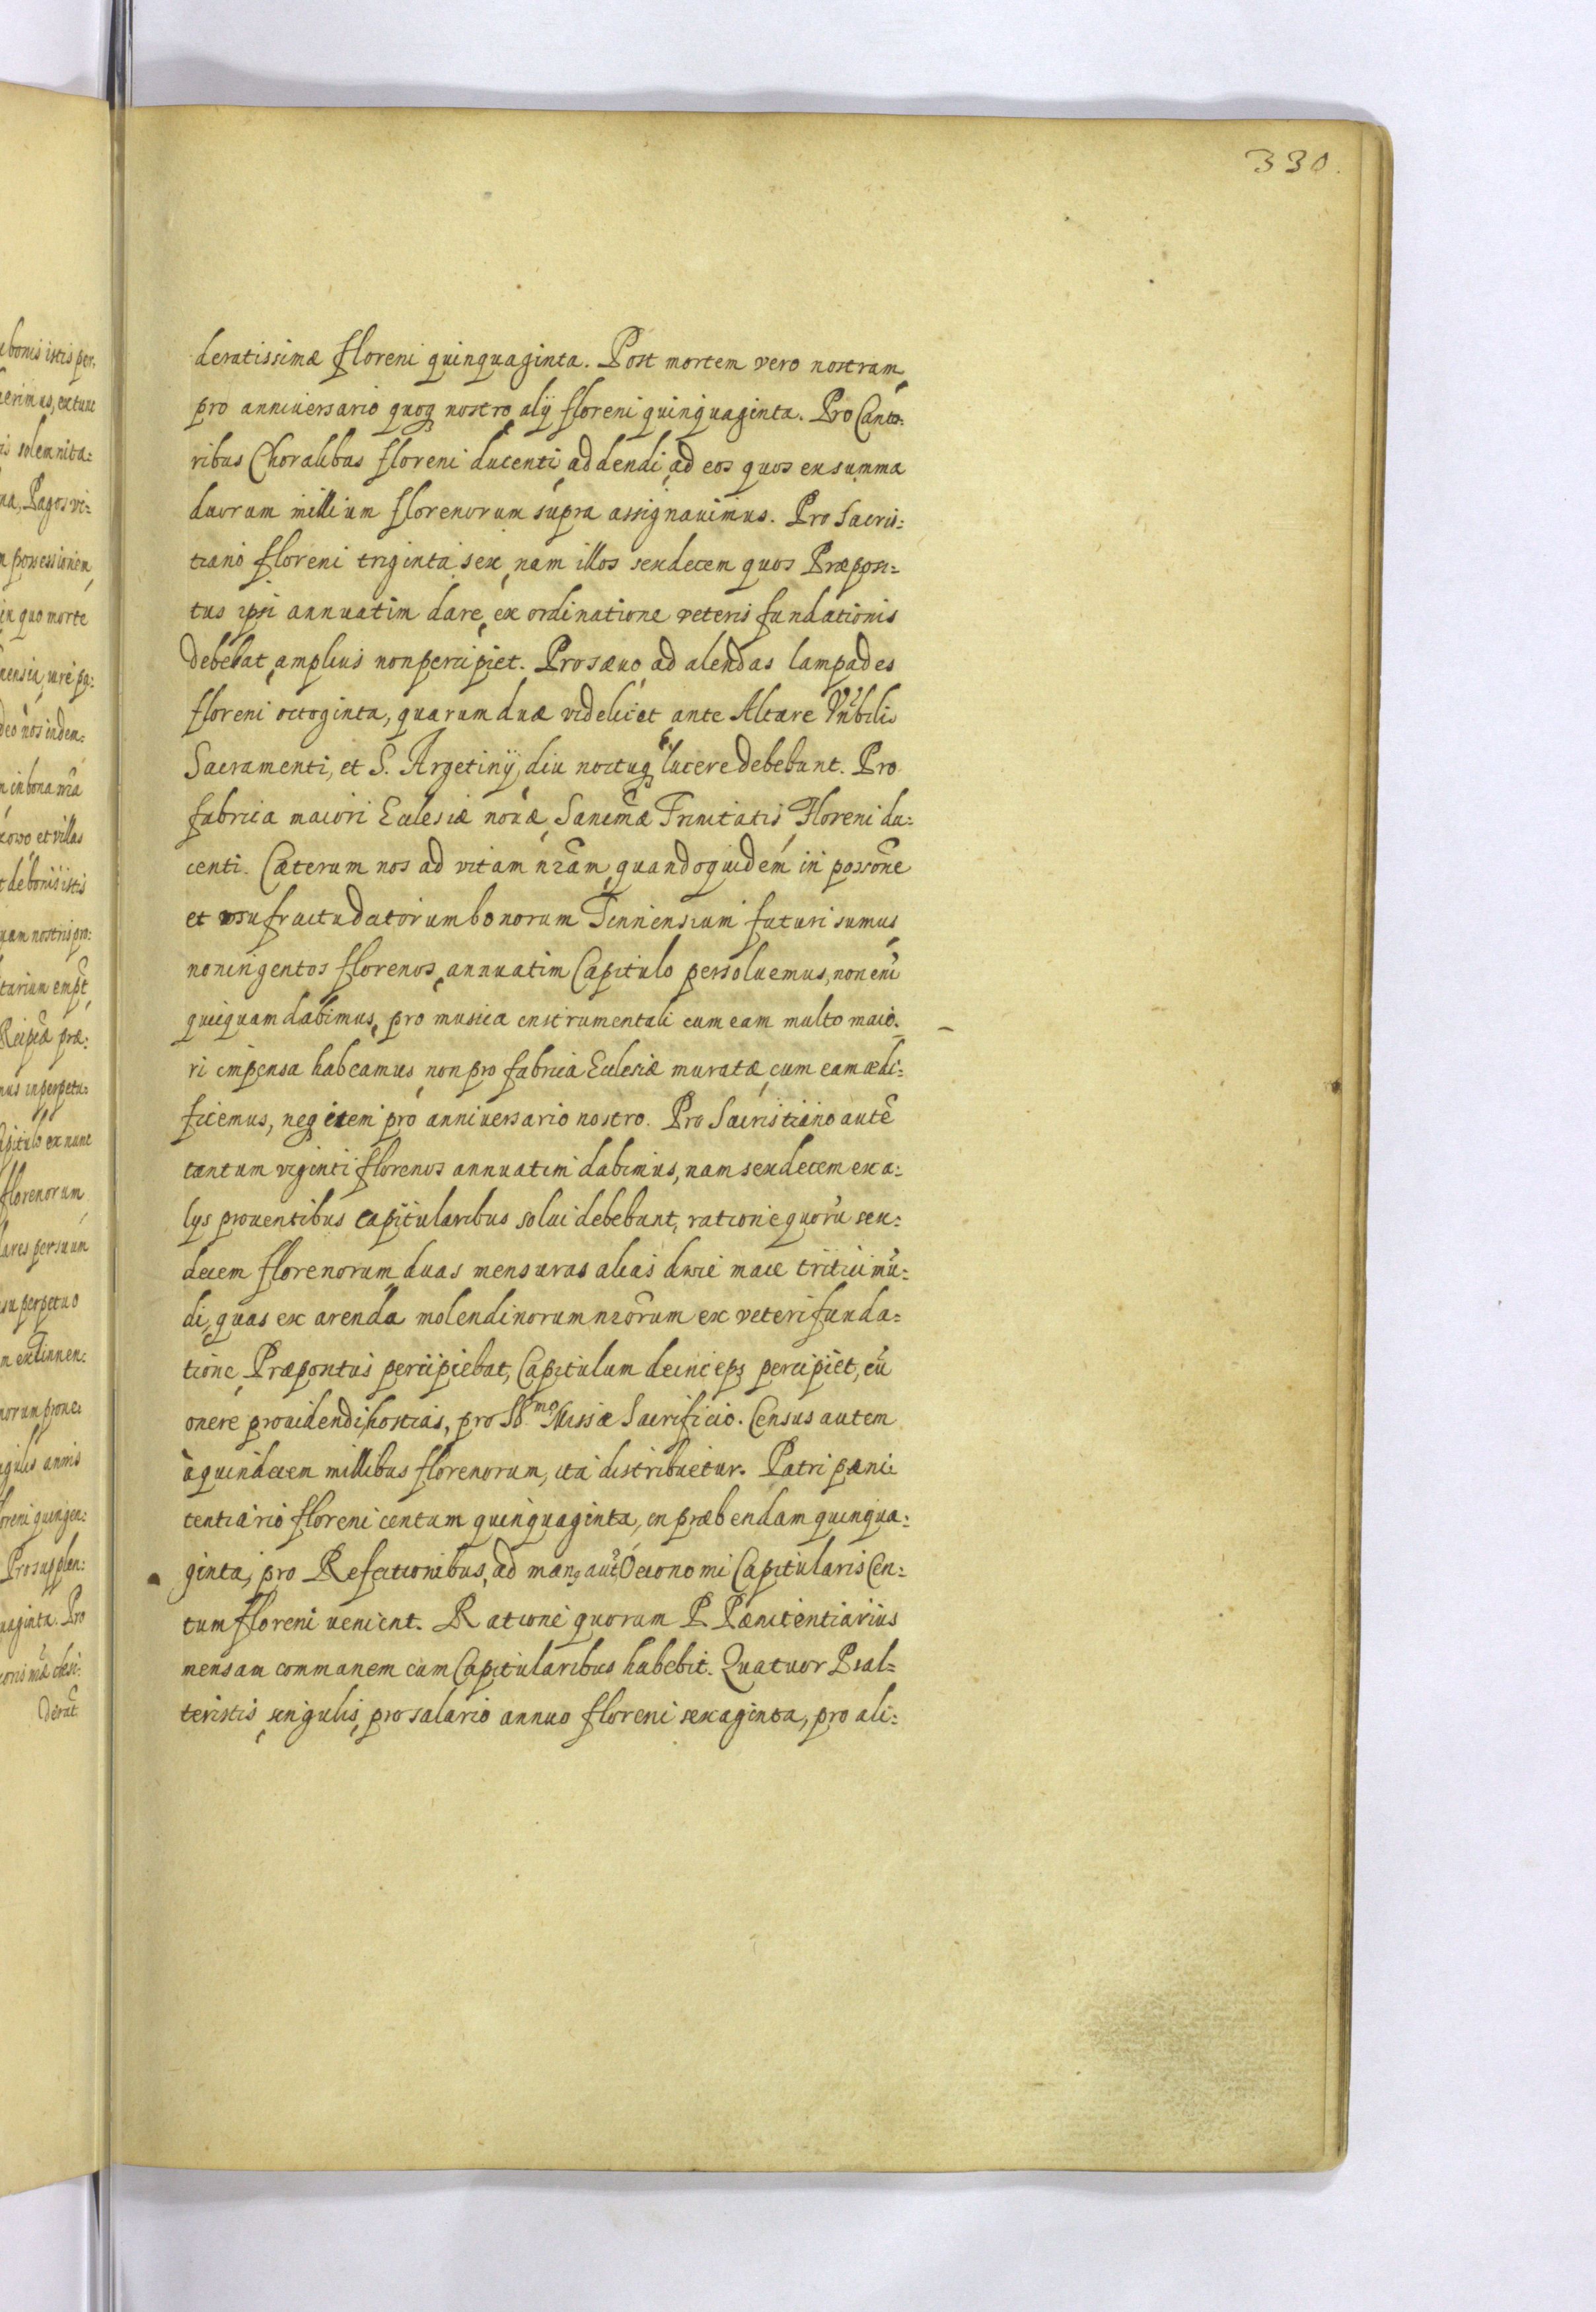 330.
deratissimæ floreni quinquaginta. Post mortem vero nostram,
pro anniversario quoq nostro, alij floreni quinquaginta. Pro Canto:
ribus Choralibus floreni ducenti, addendi, ad eos quos ex summa
duorum millium florenorum supra assignauimus. Pro Sacris:
tiano floreni triginta sex, nam illos sexdecem quos Præposi:
tus ipsi annuatim dare, ex ordinatione veteris fundationis
debebat, amplius non percipiet. Pro sæuo, ad alendas lampades
floreni octoginta, quarum duæ videlicet, ante Altare Vnbilis
Sacramenti, et S. Argetinij, diu noctuq lucere debebunt. Pro
fabrica maiori Ecclesiæ nouæ, Sanctmæ Trinitatis, Floreni du:
centi. Cæterum nos ad vitam nram, quandoquidem in possone
et usufructu dictorum bonorum Tinnensium futuri sumus,
noningentos florenos, annuatim Capitulo persoluemus, non eni
quicquam dabimus, pro musica instrumentali cum eam multo maio.
ri impensa habeamus, non pro fabrica Ecclesiæ muratæ, cum eam ædi:
ficemus, neq item pro anniuersario nostro. Pro Sacristiano autē
tantum viginti florenos annuatim dabimus, nam sexdecem ex a:
lys prouentibus capitularibus solui debebunt, ratione quorū sex:
decem florenorum, duas mensuras alias dwie mace tritici mū:
di, quas ex arenda molendinorum nrorum ex veteri funda:
tione, Præpositus percipiebat, Capitulum deinceps percipiet, cū
onere prouidendi, hostias, pro Sd.mo Missæ Sacrificio. Census autem
à quindecem millibus florenorum, ita distribuetur. Patri pæni:
tentiario floreni centum quinquaginta, in præbendam quinqua:
ginta, pro Refectionibus, ad man9 aut Oeconomi Capitularis Cen:
tum floreni uenient. Ratione quorum P. Pænitentiarius
mensam communem cum Capitularibus habebit. Quatuor Psal:
teristis, singulis, pro salario annuo floreni sexaginta, pro ali: